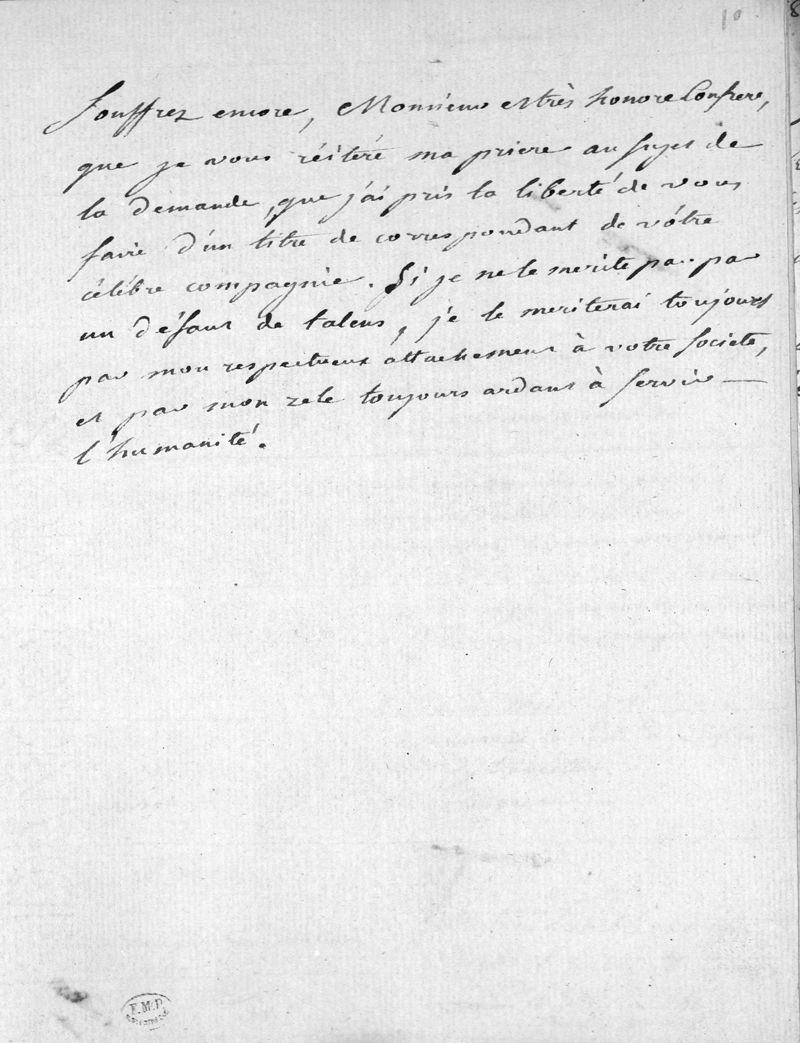 10
Souffrez encore, Monsieur et très honoré Confrere,
que je vous réitéré ma priere au sujet de
la demande, que j'ai pris la liberté de vous
faire d'un titre de correspondant de vôtre
célébre compagnie. Si je ne le merite pas par
un défaut de talens, je le meriterai toujours
par mon respectueux attachement à votre societé,
et par mon zele toujours ardant à servir —
l'humanité.
F.M.P.